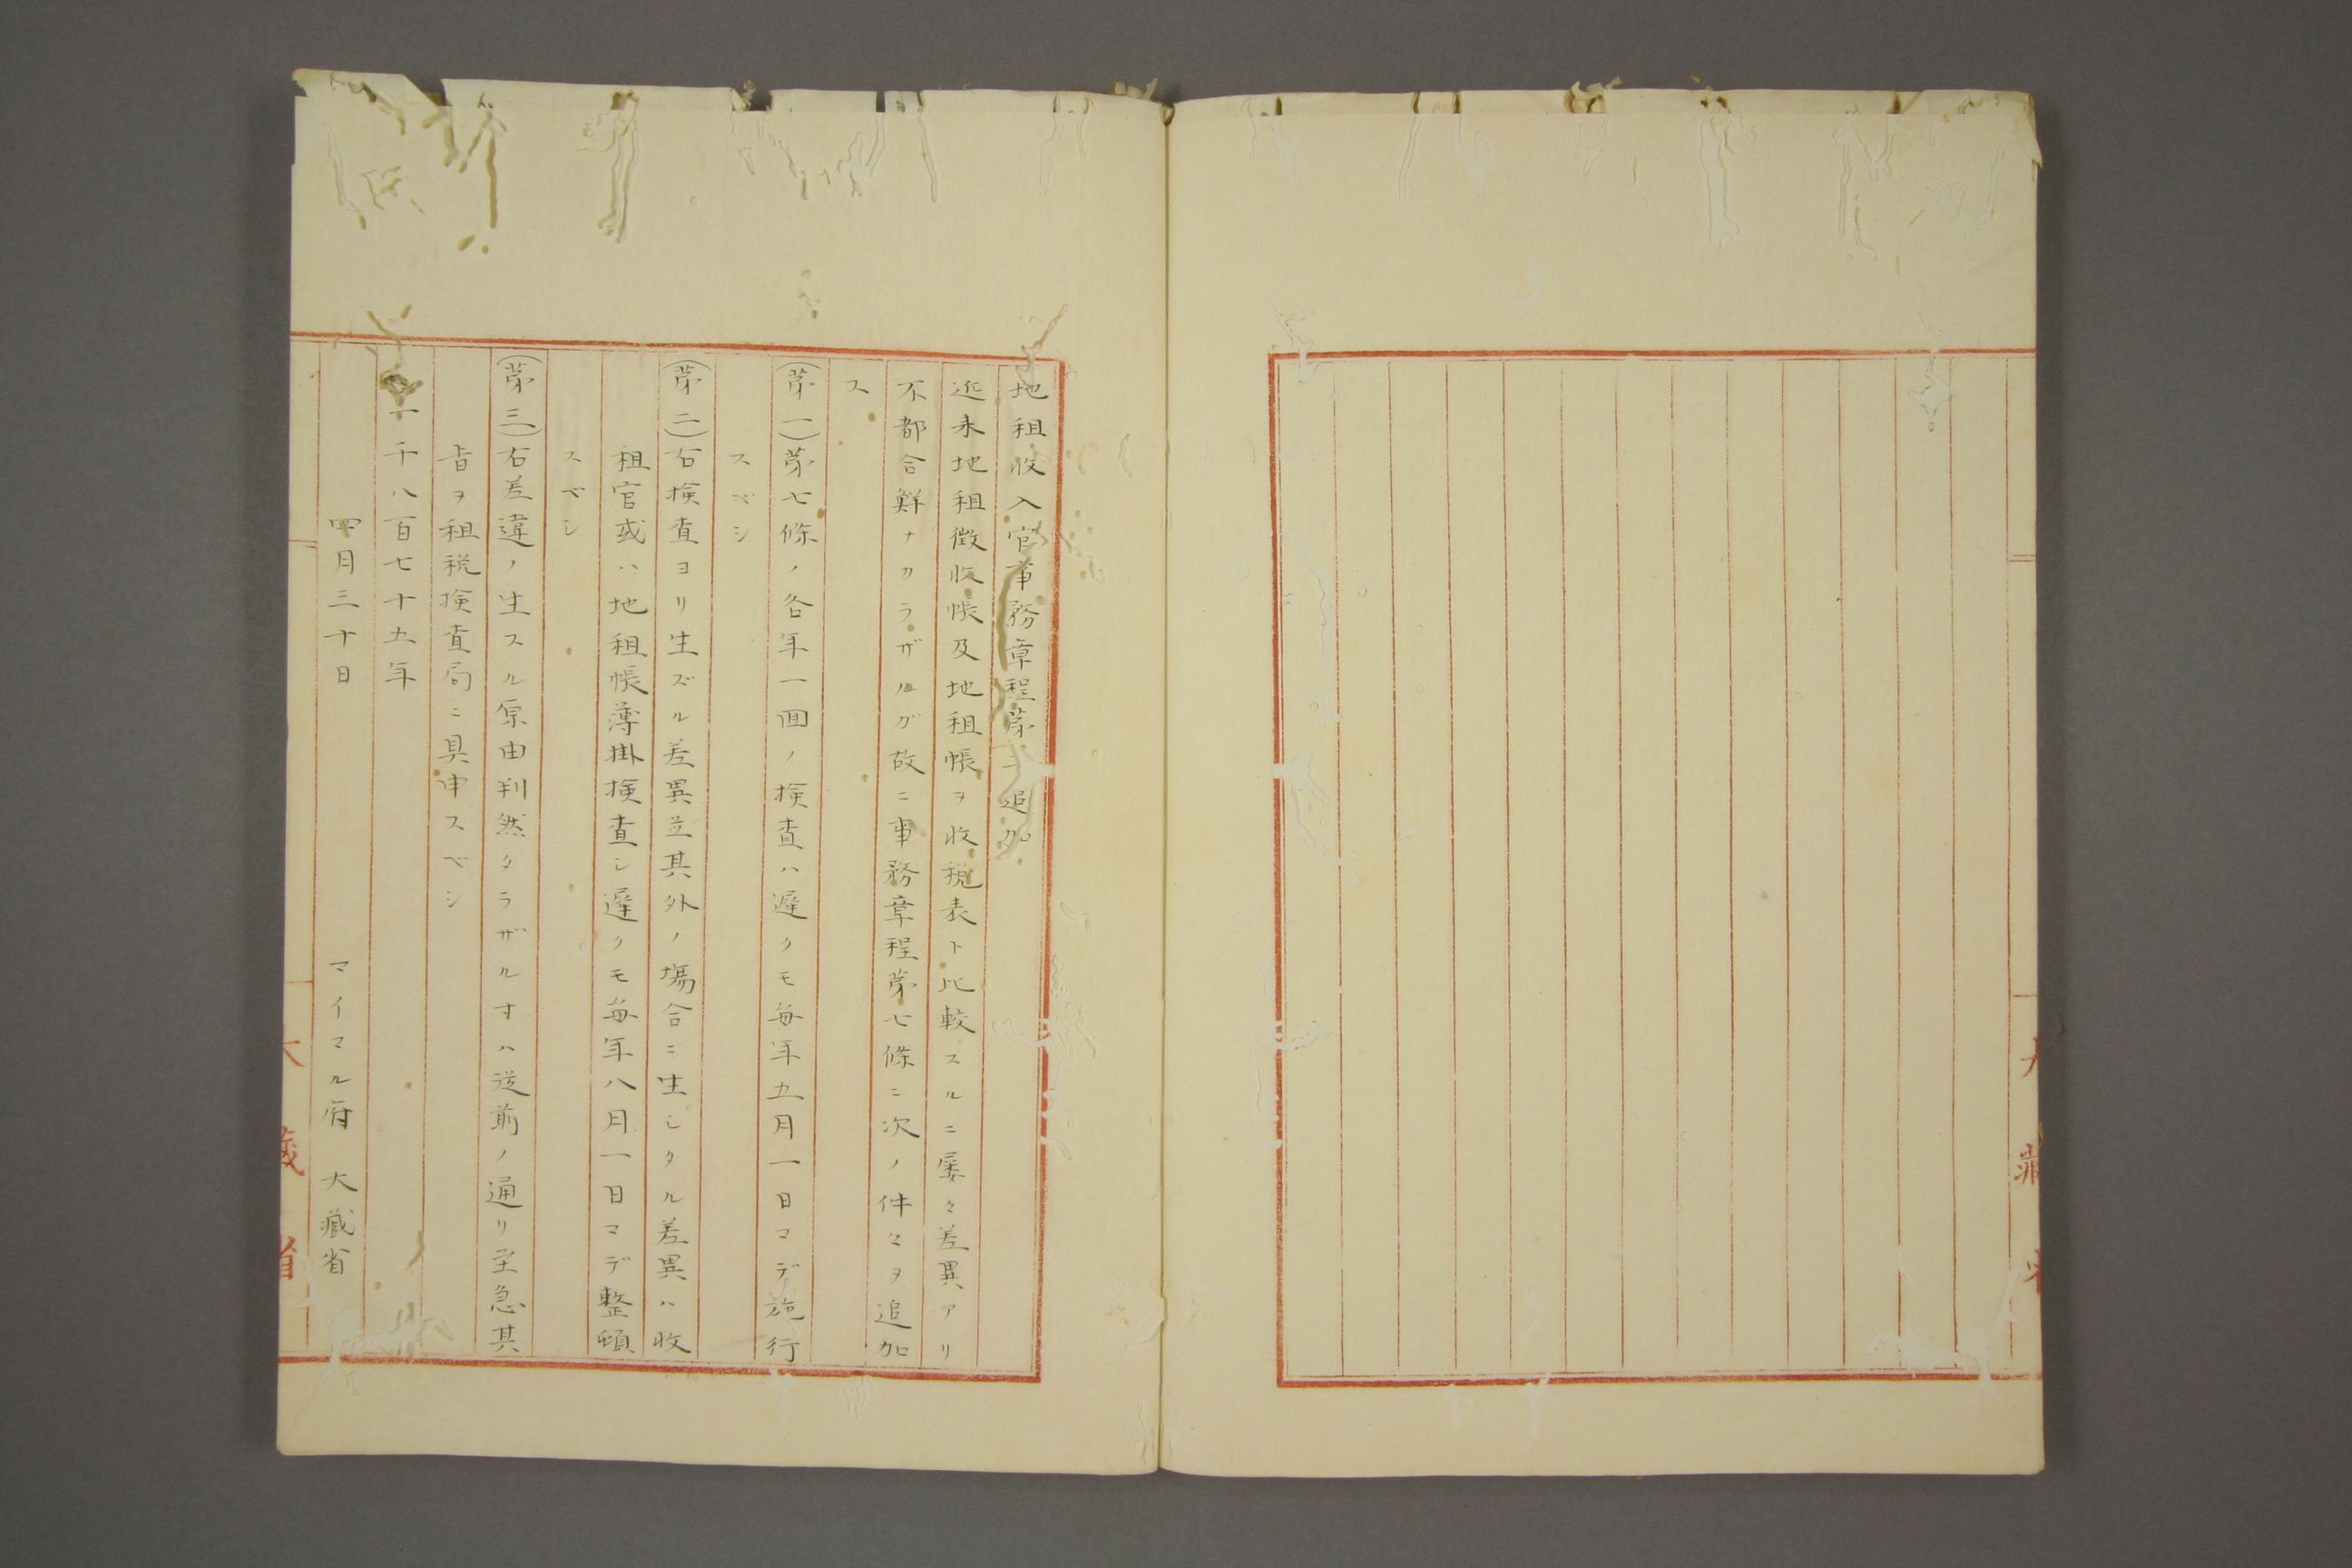 地租收入官事務章程第二追加
近来地租徴收帳及地租帳ヲ收税表ト比較スルニ屡々差異アリ
不都合鮮ナカラザルガ故ニ事務章程第七條ニ次ノ件々ヲ追加
ス
(第一)第七條ノ各年一回ノ検査ハ遲クモ毎年五月一日マデ施行
スベシ
(第二)右検査ヨリ生ズル差異並其外ノ塲合ニ生シタル差異ハ收
租官或ハ地租帳簿掛検査シ遲クモ毎年八月一日マデ整頓
スベシ
(第三)右差違ノ生スル原由判然タラザルヿハ従前ノ通リ至急其
旨ヲ租税検査局ニ具申スベシ
一千八百七十五年
四月三十日 マイマル府 大藏省
大藏省